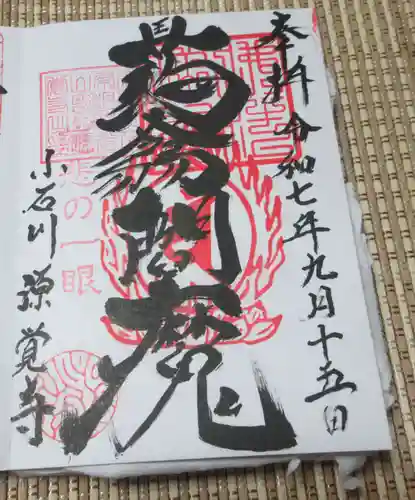 奉拝 令和七年九月十五日
蒟蒻閻魔
慈悲の一眼
小石川 源覚寺